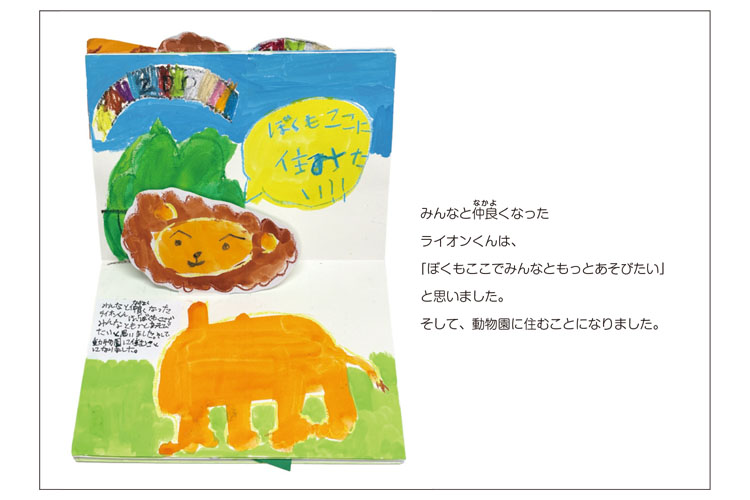 ZOO
ぼくもここに
住みた
い!!!
みんなと仲良くなった
ライオンくんは、
「ぼくもここでみんなともっとあそびたい」
と思いました。
そして、動物園に住むことになりました。
みんなと仲良くなった
ライオンくんは、「ぼくもここで
みんなともっとあそび
たい」と思いました。そして
動物園に住むこと
になりました。